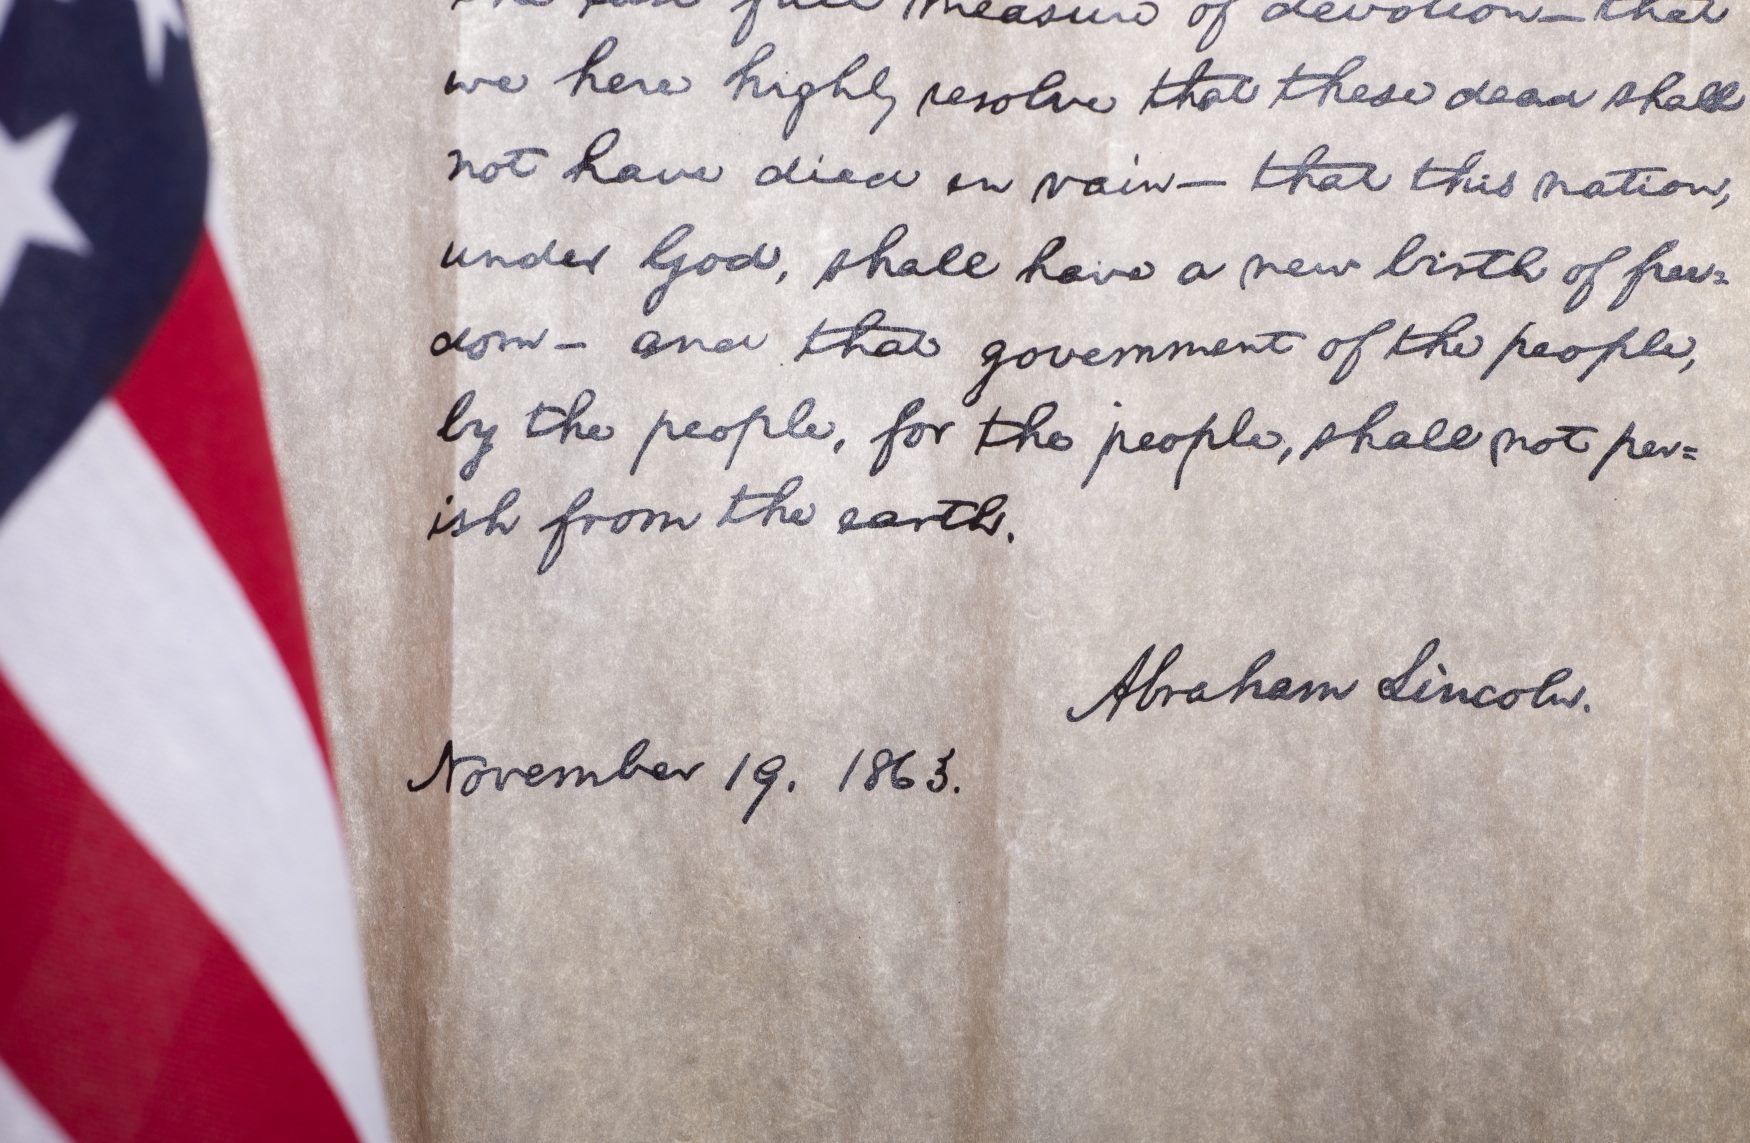 the last full measure of devotion—that
we here highly resolve that these dead shall
not have died in vain— that this nation,
under God, shall have a new birth of free=
dom— and that government of the people,
by the people, for the people, shall not per=
ish from the earth.
Abraham Lincoln.
November 19. 1863.